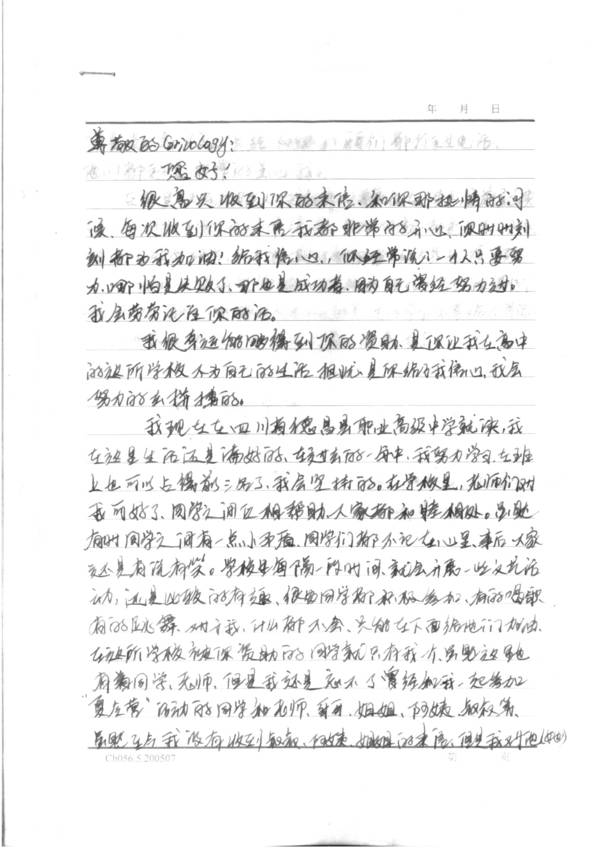 年 月 日
尊敬的Grivclogy:
您好!
很高兴收到你的来信,和你那热情的问
候,每次收到你的来信我都非常的开心,你时时刻
刻都为我加油!给我信心,你经常说:一个人只要努
力,哪怕是失败了,那也是成功者,因为自己曾经努力过。
我会劳劳记住你的话。
我很幸运能够得到你的资助,是你让我在高中
的这所学校不为自己的生活担忧,是你给了我信心,我会
努力的去拼搏的。
我现在在四川省德昌县职业高级中学就读,我
在这里生活还是满好的,在过去的一年中,我努力学习,在班
上也可以占得前三名了,我会坚持的。在学校里,老师们对
我可好了,同学之间互相帮助,人家都和睦相处。虽然
有时同学之间有一点小矛盾,同学们都不记在心里,事后大家
还是有说有笑。学校里每隔一段时间,就会开展一些文艺活
动,还是比较的有趣,很多同学都积极参加,有的唱歌
有的跳舞,对于我,什么都不会,只能在下面给他们加油。
在这所学校被你资助的同学就只有我一个,虽然这里也
有同学、老师,但是我还是忘不了曾经和我一起参加
"夏令营"活动的同学和老师、哥哥、姐姐、阿姨、叔叔等,
虽然至今我没有收到叔叔、阿姨、姐姐的来信,但是我对他(她)
Cb056.5.200507 第 页